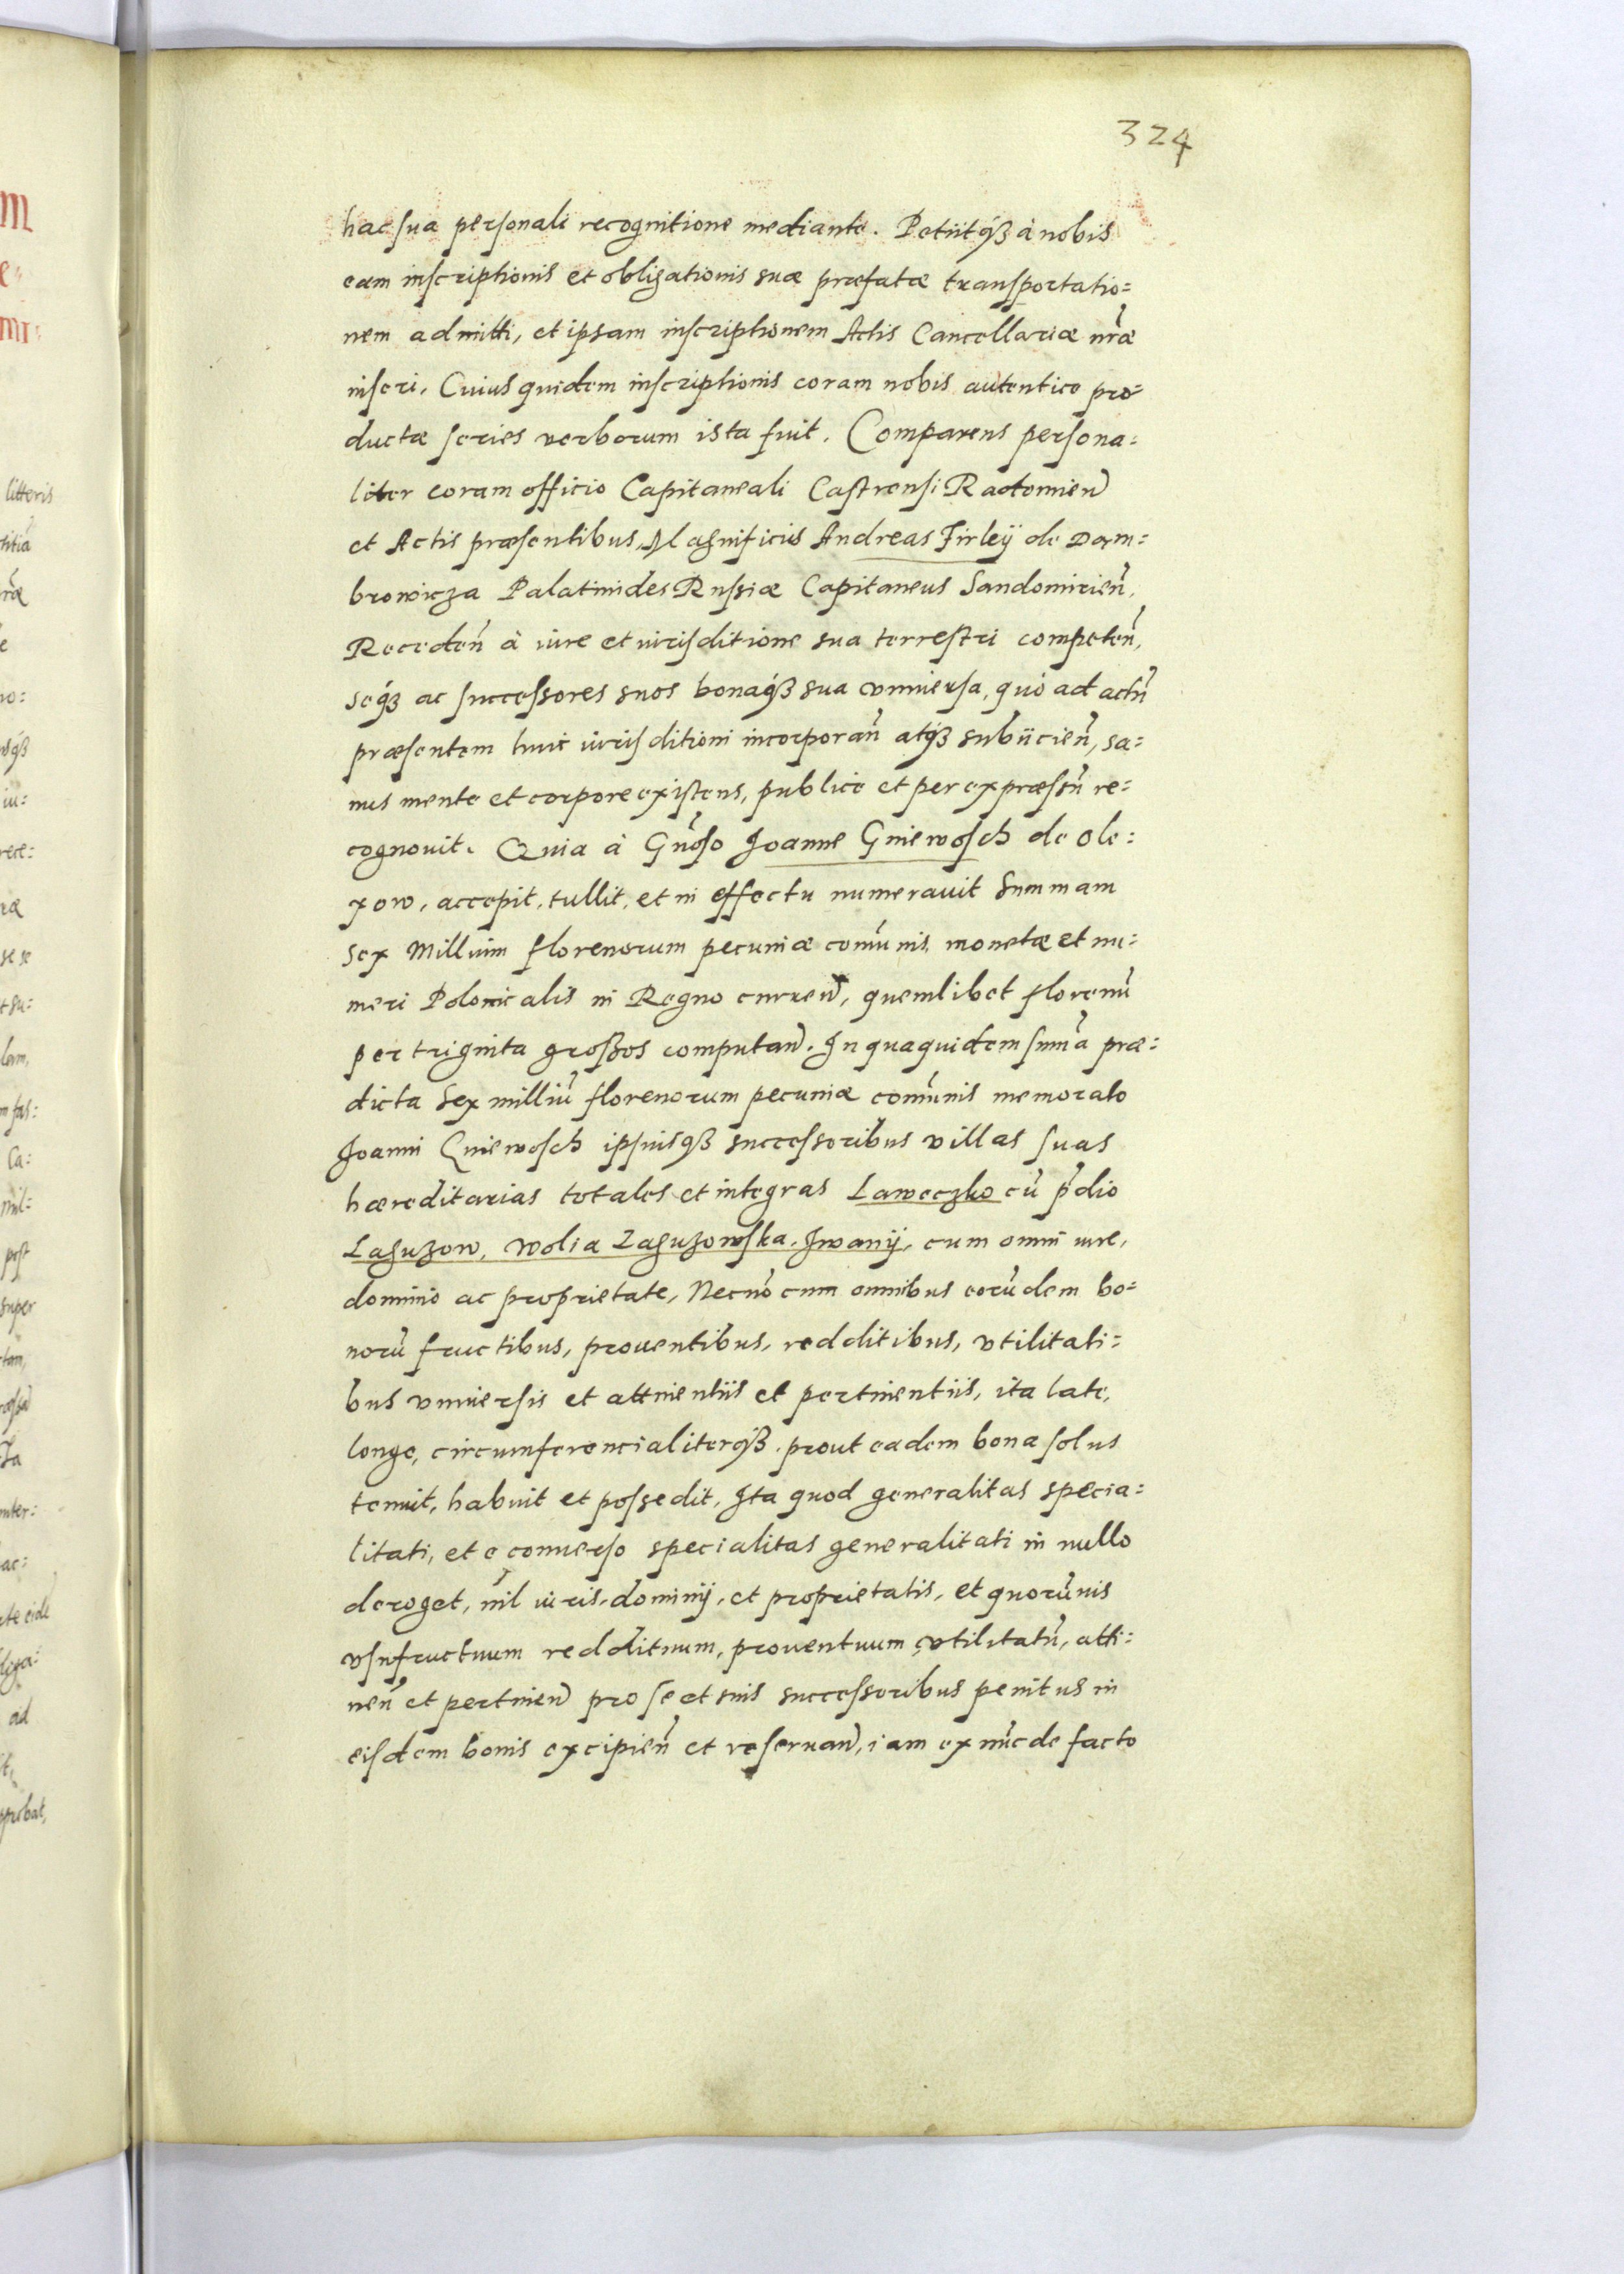 324
hac sua personali recognitione mediante. Petiitqȝ à nobis
eam inscriptionis et obligationis suæ præfatæ transportatio=
nem admitti, et ipsam inscriptionem Actis Cancellariæ nr̃æ
inseri. Cuius quidem inscriptionis coram nobis autentice pro=
ductæ series verborum ista fuit. Comparens persona=
liter coram officio Capitaneali Castrensi Radomien̄
et Actis præsentibus, Magnificus Andreas Firleÿ de Dam=
browicza Palatinides Russiæ Capitaneus Sandomirien̄,
Receden̄ à iure et iurisditione sua terrestri competen̄,
seqȝ ac successores suos bonaqȝ sua vniuersa, quò ad actū
præsentem huic iurisditioni incorporan̄ atqȝ subiicien̄, sa=
nus mente et corpore existens, publice et per expræssū re=
cognouit. Quia à Gn̄oso Joanne Gniewosch de Ole=
xow, accepit, tullit, et in effectu numerauit Summam
sex Millium florenorum pecuniæ com̄unis, monetæ et nu=
meri Polonicalis in Regno curren̄, quemlibet florenū
per triginta grossos computan̄. In qua quidem sum̄a præ=
dicta Sex milliū florenorum pecuniæ com̄unis memorato
Joanni Gniewosch ipsiusqȝ successoribus villas suas
hæreditarias totales et integras Laweczko cū p̄dio
Laguzow, Wolia Laguzowska, Iwanÿ, cum omni iure,
dominio ac proprietate, Necnō cum omnibus eorūdem bo=
norū fructibus, prouentibus, redditibus, vtilitati=
bus vniuersis et attinentiis et pertinentiis, ita late,
longe, circumferencialiterqȝ. prout eadem bona solus
tenuit, habuit et possedit, Ita quod generalitas specia=
litati, et e conuerso specialitas generalitati in nullo
deroget, nil iuris, dominÿ, et proprietatis, et quorūuis
vsufructuum reddituum, prouentuum vtilitatū, atti=
nen̄ et pertinen̄ pro se et suis successoribus penitus in
eisdem bonis excipien̄ et reseruan̄, iam ex nūc de facto